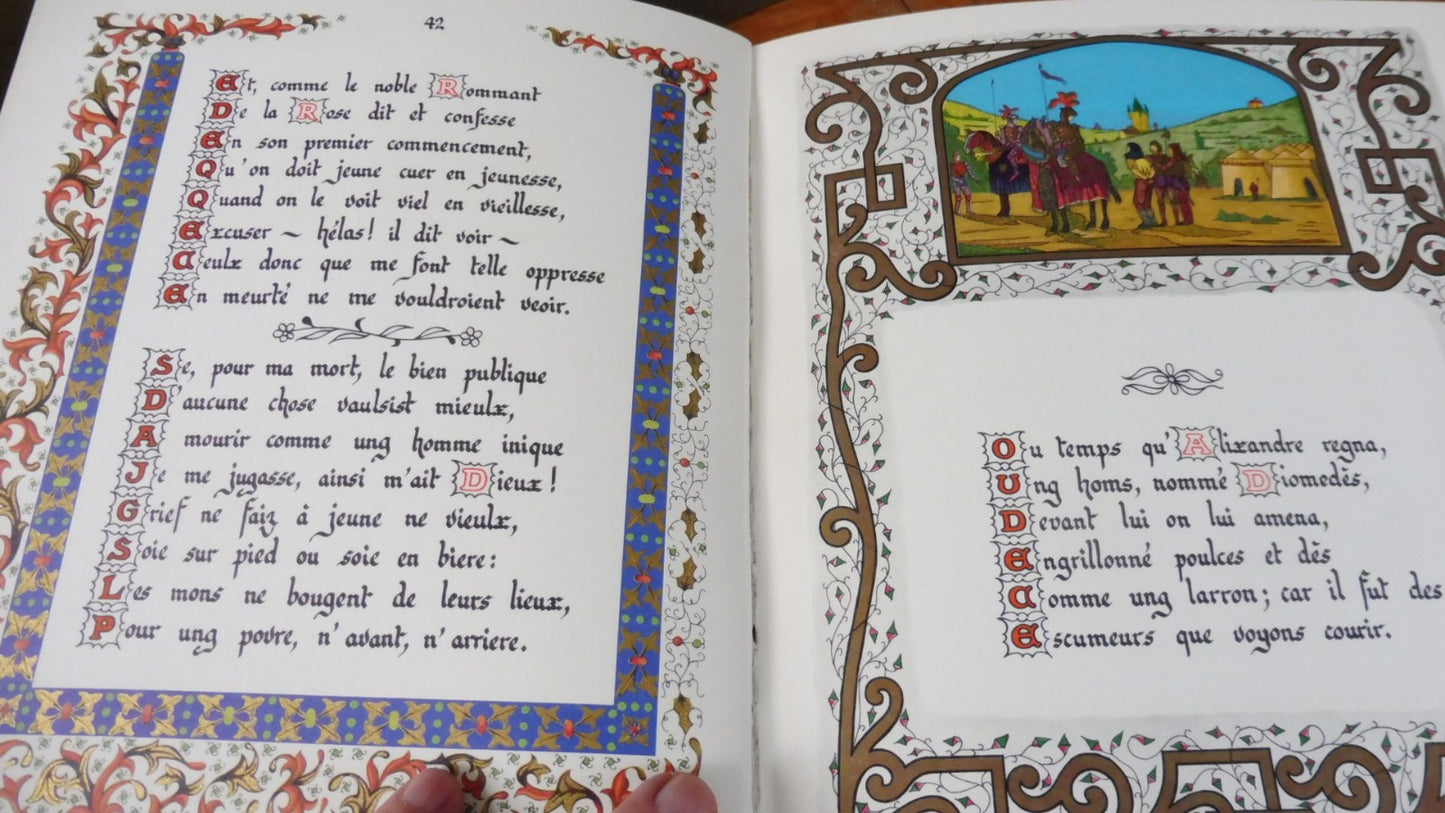 42
Et, comme le noble Rommant
De la Rose dit et confesse
En son premier commencement,
Qu'on doit jeune cuer en jeunesse,
Quand on le voit viel en vieillesse,
Excuser ~ hélas! il dit voir ~
Ceulx donc que me font telle oppresse
En meurté ne me vouldroient veoir.
Se, pour ma mort, le bien publique
D'aucune chose vaulsist mieulx,
A mourir comme ung homme inique
Je me jugasse, ainsi m'ait Dieux!
Grief ne faiz à jeune ne vieulx,
Soie sur pied ou soie en biere:
Les mons ne bougent de leurs lieux,
Pour ung povre, n'avant, n'arriere.
Ou temps qu'Alixandre regna,
Ung homs, nommé Diomedès,
Devant lui on lui amena,
Engrillonné poulces et dès
Comme ung larron; car il fut des
Escumeurs que voyons courir.